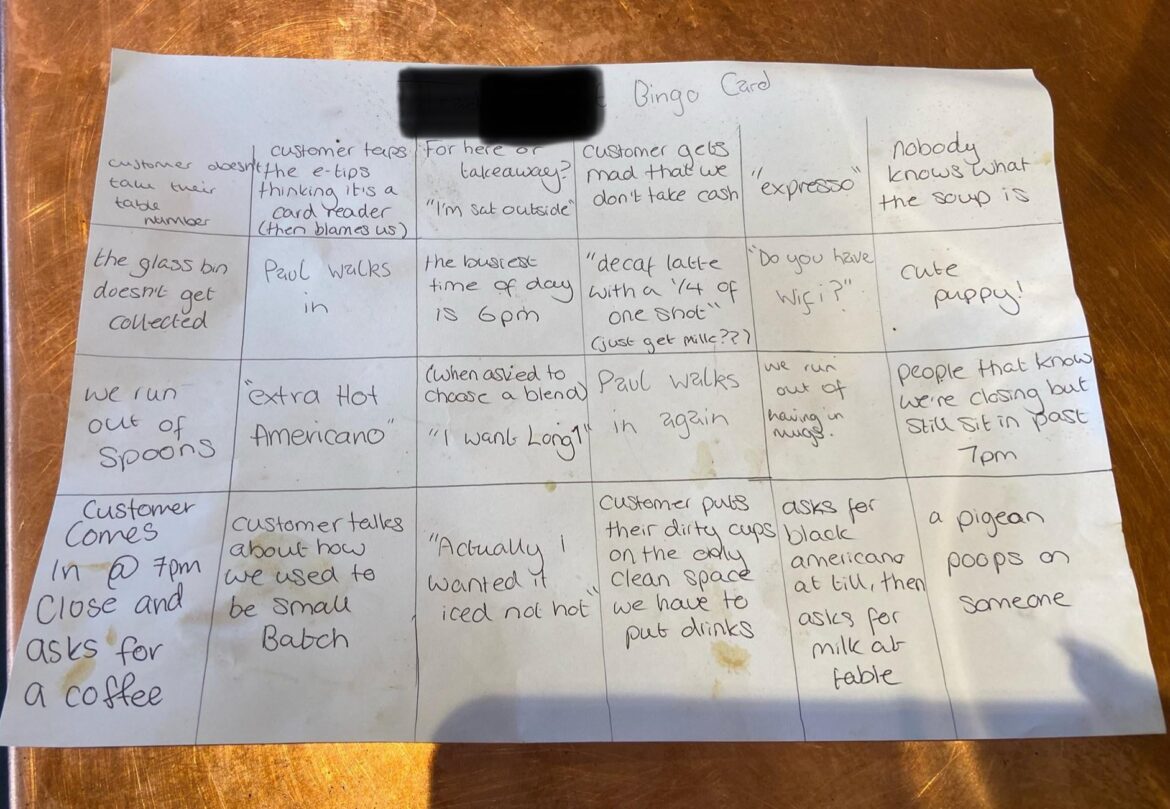 Bingo Card
customer doesn't
take their
table
number
customer taps
the e-tips
thinking it's a
card reader
(then blames us)
For here or
takeaway?
"I'm sat outside"
customer gets
mad that we
don't take cash
"expresso"
nobody
knows what
the soup is
the glass bin
doesn't get
collected
Paul walks
in
the busiest
time of day
is 6pm
"decaf latte
with a 1/4 of
one shot"
(just get milk???)
"Do you have
wifi?"
cute
puppy!
we run
out of
spoons
"extra Hot
Americano"
(when asked to
choose a blend)
"I want Long 1"
Paul walks
in again
we run
out of
having in
mugs.
people that know
we're closing but
still sit in past
7pm
Customer
Comes
In @ 7pm
Close and
asks for
a coffee
customer talks
about how
we used to
be small
Batch
"Actually I
wanted it
iced not hot"
Customer puts
their dirty cups
on the only
clean space
we have to
put drinks
asks for
black
americano
at till, then
asks for
milk at
table
a pigean
poops on
someone